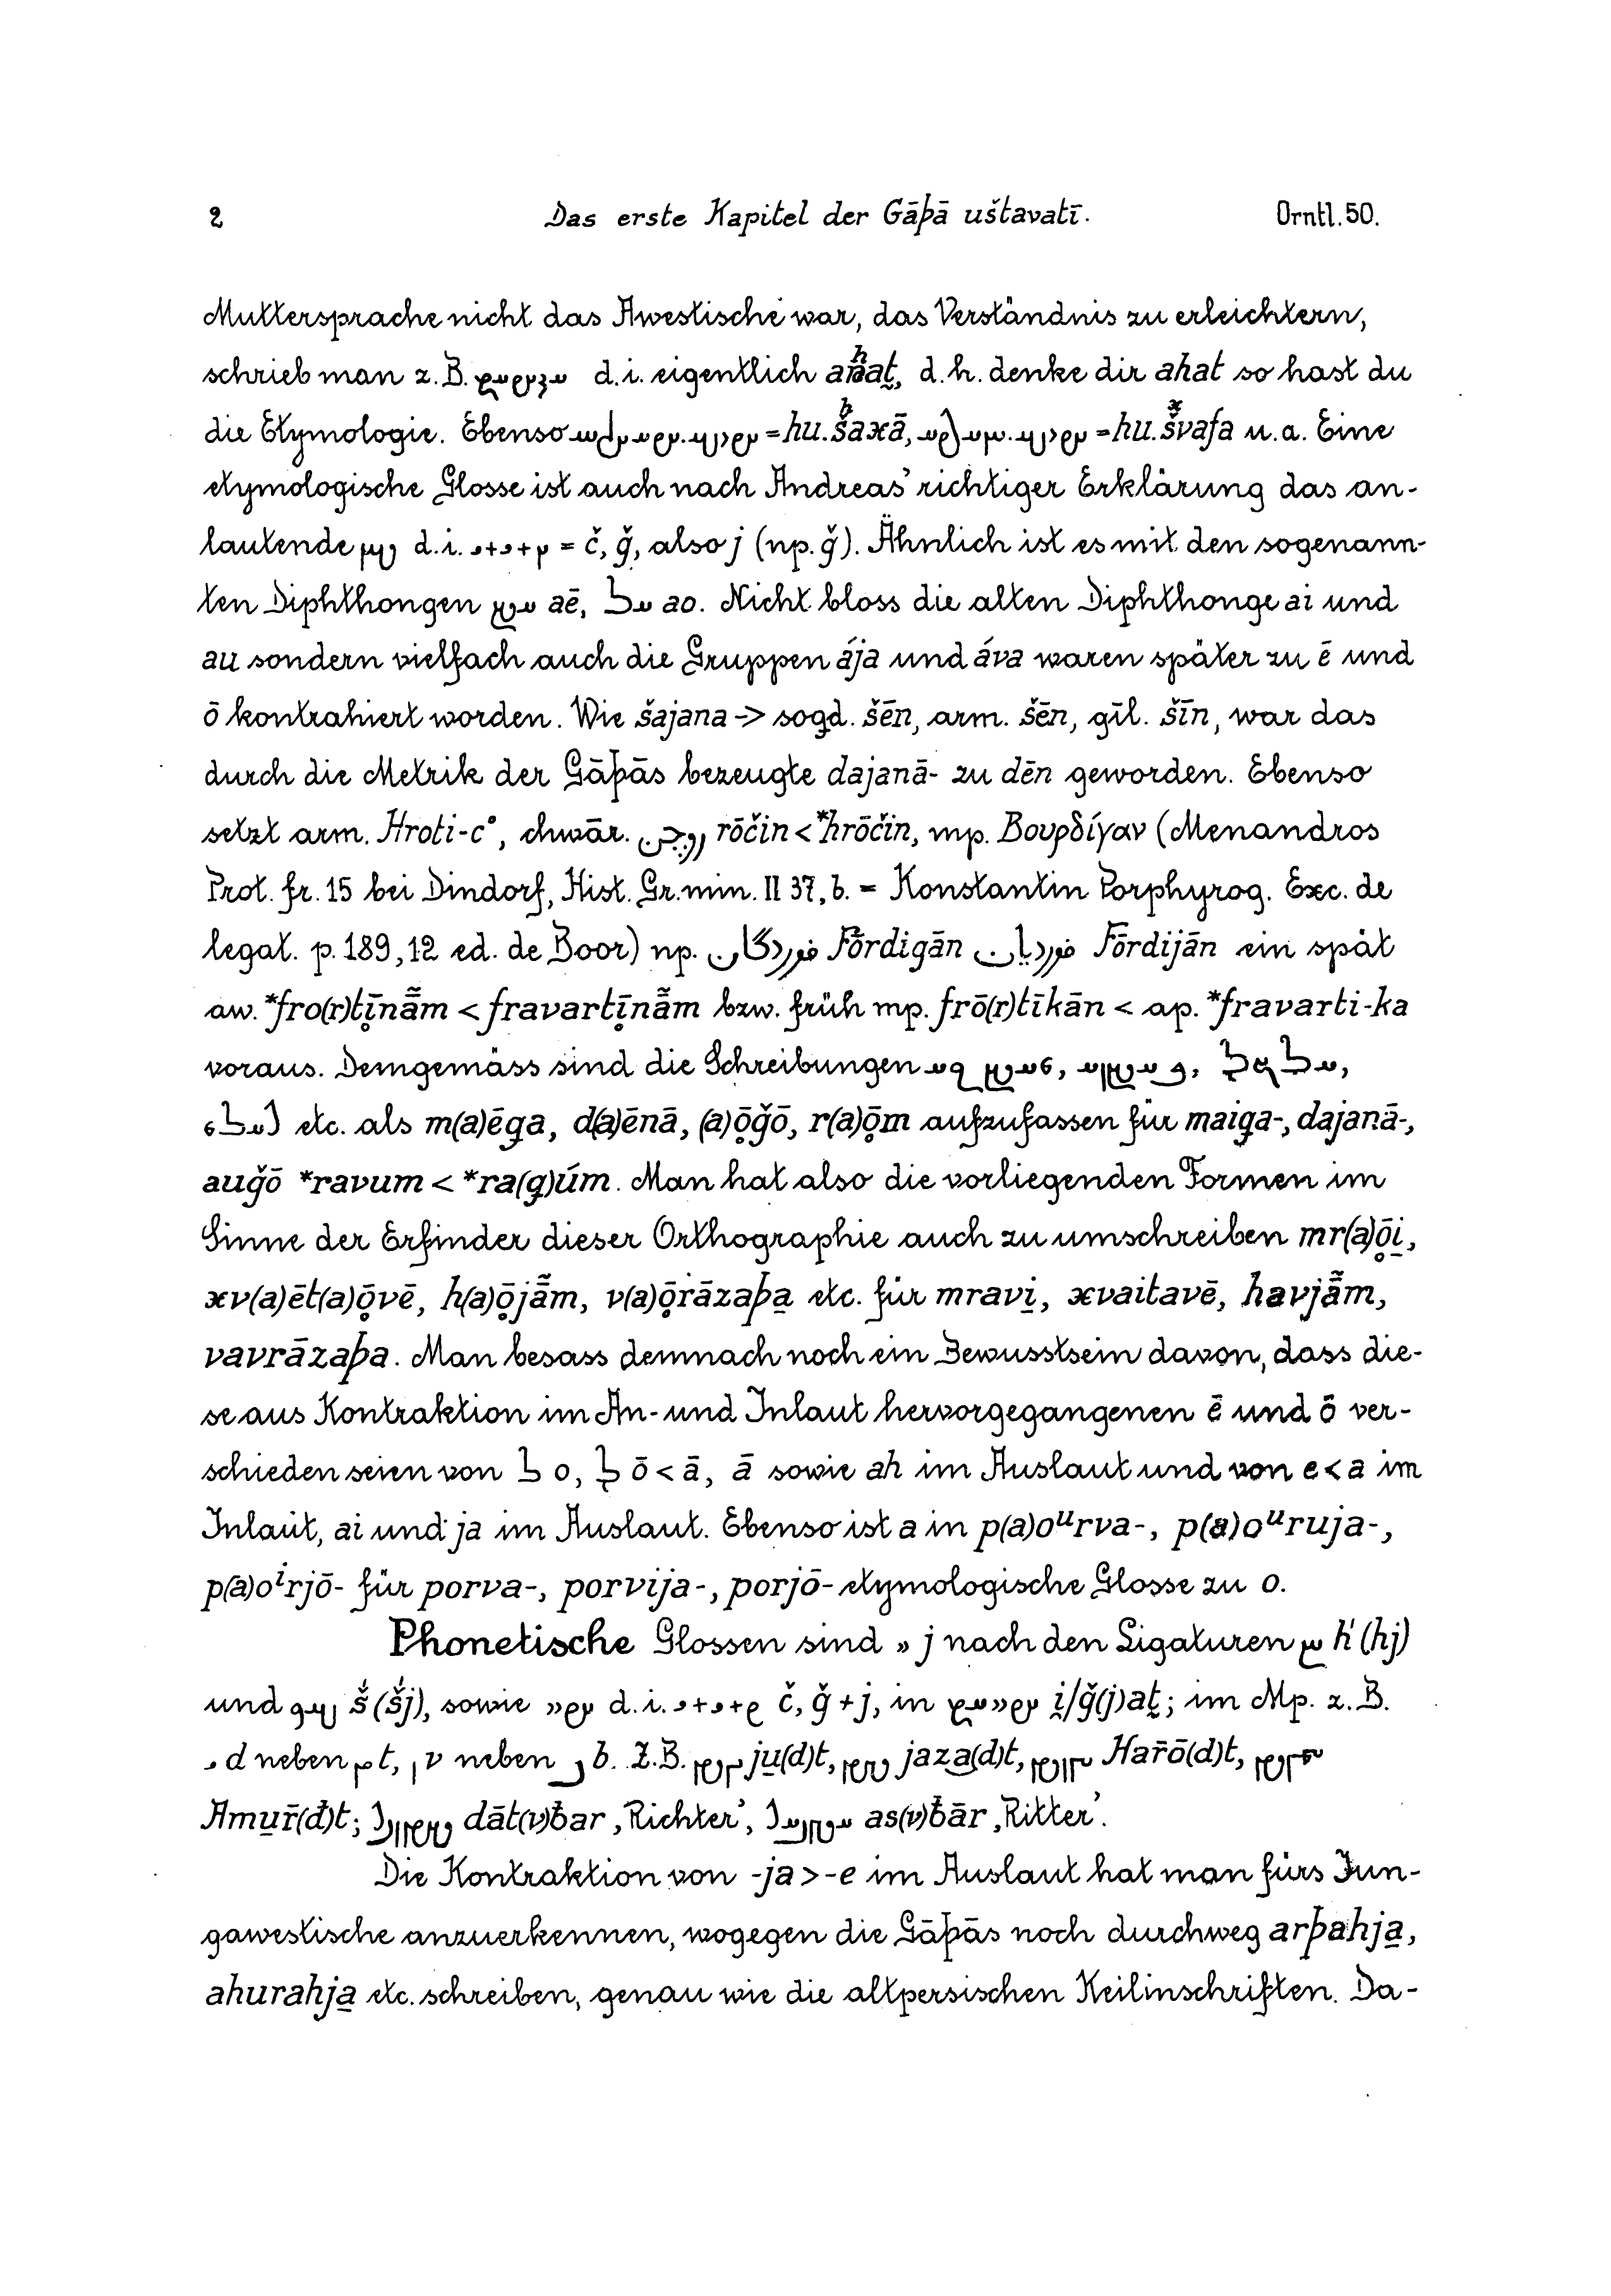 2 Das erste Kapitel der Gāþā uštavatī. Orntl. 50.
Muttersprache nicht das Awestische war, das Verständnis zu erleichtern,
schrieb man z. B. d. i. eigentlich d. h. denke dir ahat so hast du
die Etymologie. Ebenso = hu. = hu. u. a. Eine
etymologische Glosse ist auch nach Andreas' richtiger Erklärung das an-
lautende d. i. = č, ǧ, also j (np. ǧ). Ähnlich ist es mit den sogenann-
ten Diphthongen aē, ao. Nicht bloss die alten Diphthonge ai und
au sondern vielfach auch die Gruppen ája und áva waren später zu ē und
ō kontrahiert worden. Wie šajana -> sogd. šēn, arm. šēn, gīl. šīn, war das
durch die Metrik der Gāþās bezeugte dajanā- zu dēn geworden. Ebenso
setzt arm. Hroti-c°, chwār. روچن rōčin < *hrōčin, mp. Βουρδίγαν (Menandros
Prot. fr. 15 bei Dindorf, Hist. Gr. min. II 37, b. = Konstantin Porphyrog. Exc. de
legat. p. 189, 12 ed. de Boor) np. فوردگان Fōrdigān فوردیان Fōrdijān ein spät
aw. *fro(r)tī̥nā̃m < fravartī̥nā̃m bzw. früh mp. frō(r)tīkān < ap. *fravarti-ka
voraus. Demgemäss sind die Schreibungen
etc. als m(a)ēga, d(a)ēnā, (a)ō̥ǧō, r(a)ō̥m aufzufassen für maiga-, dajanā-,
auǧō *ravum < *ra(g)úm. Man hat also die vorliegenden Formen im
Sinne der Erfinder dieser Orthographie auch zu umschreiben mr(a)ō̥i̱,
xv(a)ēt(a)ō̥vē, h(a)ō̥jā̃m, v(a)ō̥rāzaþa̱ etc. für mravi̱, xvaitavē, havjā̃m,
vavrāzaþa. Man besass demnach noch ein Bewusstsein davon, dass die-
se aus Kontraktion im An- und Inlaut hervorgegangenen ē und ō ver-
schieden seien von o, ō < ā, ā sowie ah im Auslaut und von e < a im
Inlaut, ai und ja im Auslaut. Ebenso ist a in p(a)oᵘrva-, p(a)oᵘruja-,
p(a)oⁱrjō- für porva-, porvija-, porjō- etymologische Glosse zu o.
Phonetische Glossen sind j nach den Ligaturen h́ (hj)
und š́ (šj), sowie d. i. č, ǧ + j, in im Mp. z. B.
d neben t, v neben b. Z. B. ju̱(d)t, jaza(d)t, Har̄ō(d)t,
Amu̱r̄(d)t; dāt(v)ƀar ‚Richter', as(v)ƀār ‚Ritter'.
Die Kontraktion von -ja > -e im Auslaut hat man fürs Jun-
gawestische anzuerkennen, wogegen die Gāþās noch durchweg arþahja̱,
ahurahja̱ etc. schreiben, genau wie die altpersischen Keilinschriften. Da-